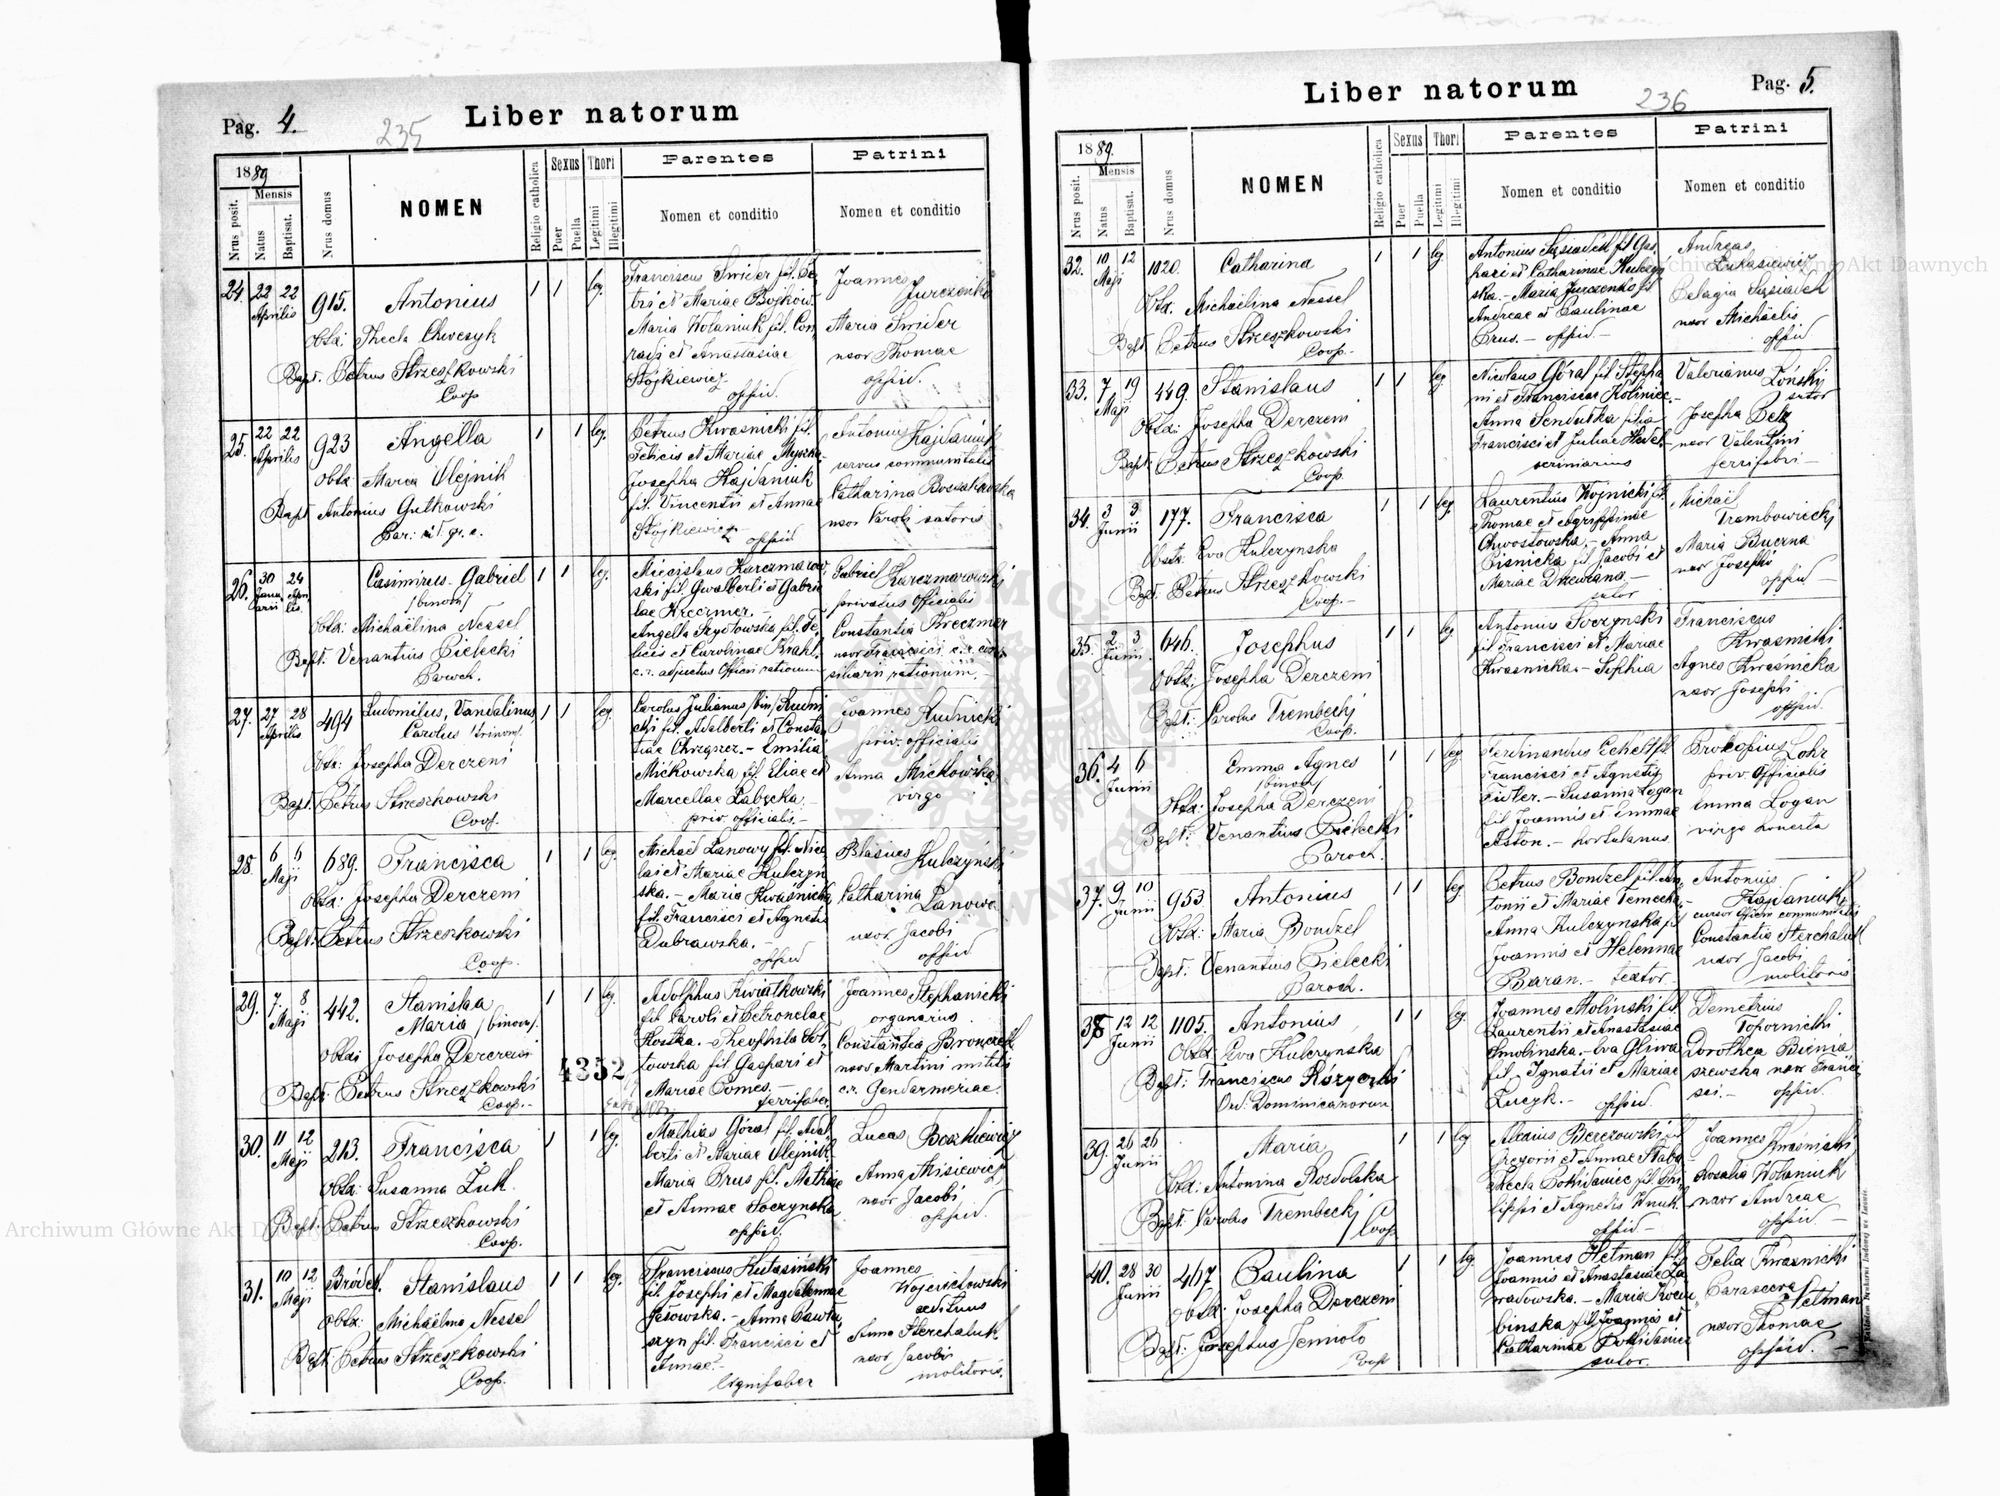 Pag. 4.
235
Liber natorum
1889
Nrus posit.
Mensis
Natus
Baptisat.
Nrus domus
NOMEN
Religio catholica
Sexus
Puer
Puella
Thori
Legitimi
Illegitimi
Parentes
Nomen et conditio
Patrini
Nomen et conditio
24. 22 22 Aprilis 915. Antonius 1 1 leg.
Obst: Thecla Chwesyk
Bapt. Petrus Strzeszkowski
Coop
Franciscus Swider fil. Pe
tri et Mariae Bojków.
Maria Wolaniuk fil. Con
radi et Anastasiae
Stojkiewicz
oppid.
Joannes
Jurczenko
Maria Swider
uxor Thomae
oppid.
25. 22 22 Aprilis 923 Angella 1 1 leg.
Obst: Maria Olejnik
Bapt Antonius Gutkowski
Par: rit. gr. c.
Petrus Kwasnicki fil.
Felicis et Mariae Myszka
Josepha Hajdaniuk
fil. Vincentii et Annae
Stojkiewicz
oppid
Antonius Hajdaniuk
servus communitatis
Catharina
uxor Caroli satoris
26. 30 Januarii 24 Aprilis Casimirus-Gabriel 1 1 leg.
/binom/
Obst: Michaëlina Nessel
Bapt. Venantius Pielecki
Paroch.
Miecislaus Karczmarow
ski fil. Gwalberti et Gabrie
lae Kreczmer. -
Angella Szydlowska fil. Fe
licis et Carolinae Brahl.
c.r. adjuctus Officii rationum
Gabriel Karczmarowski
privatus Officialis
Constantia Kreczmer
uxor Francisci c.r. con
siliarii rationum. -
27. 27 28 Aprilis 494 Ludomilus, Vandalinus 1 1 leg.
Carolus /trinom/
Obst: Josepha Derczeni
Bapt: Petrus Strzeszkowski
Coop.
Carolus Julianus /bin/ Rudni
cki fil. Adalberti et Constan
tiae Chrząszcz. - Emilia
Mićkowska fil. Eliae et
Marcellae Łabęcka. -
priv. officialis. -
Joannes Rudnicki
priv. officialis
Anna Mićkowska
virgo
28. 6 6 Maji 689. Francisca 1 1 leg.
Obst: Josepha Derczeni
Bapt: Petrus Strzeszkowski
Coop.
Michaël Lanowy fil. Nico
lai et Mariae Kulczyn
ska. - Maria Kwaśnicka
fil. Francisci et Agnetis
Dubrawska. -
oppid
Blasius Kulczyński
Catharina
Lanowa
uxor Jacobi
oppid
29. 7. 8 Maji 442. Stanislaa 1 1 leg.
Maria /binom/.
Obst: Josepha Derczeni
Bapt: Petrus Strzeszkowski
Coop.-
4352
Adolphus Kwiatkowski
fil Caroli et Petronelae
Kostka. - Theophila
towska fil Gaspari et
Mariae Pomes. -
ferrifaber
Joannes Stephanicki
organarius
Constantia
uxor Martini militis
c.r. Gendarmeriae.
30. 11 12 Maji 213. Francisca 1 1 leg.
Obst: Susanna Zuk.
Bapt: Petrus Strzeszkowski
Coop.
Mathias Góral fil. Adal
berti et Mariae Olejnik.
Maria Prus fil. Mathiae
et Annae Soczynska
oppid.
Lucas Boszkiewicz
Anna Misiewicz
uxor Jacobi
oppid.
31. 10 12 Maji Bródek. Stanislaus 1 1 leg.
Obst: Michaëlina Nessel
Bapt: Petrus Strzeszkowski
Coop.
Franciscus Kutasiński
fil. Josephi et Magdalenae
Jasowska. - Anna Pawlu
szyn fil. Francisci et
Annae. -
lignifaber
Joannes
Wojciechowski
aedituus
Anna Sterchaluk
uxor Jacobi
molitoris.
Pag. 5.
236
Liber natorum
1889.
Nrus posit.
Mensis
Natus
Baptisat.
Nrus domus
NOMEN
Religio catholica
Sexus
Puer
Puella
Thori
Legitimi
Illegitimi
Parentes
Nomen et conditio
Patrini
Nomen et conditio
32. 10 12 Maji 1020. Catharina 1 1 leg
Obst. Michaëlina Nessel
Bapt Petrus Strzeszkowski
Coop.
Antonius Sąsiadek fil Gas
pari et Catharinae Kulczyń
ska. - Maria Jurczenko fil
Andreae et Paulinae
Prus. - oppid
Andreas
Łukasiewicz
Pelagia Sąsiadek
uxor Michaëlis
oppid
33. 7 19 Maji 449. Stanislaus 1 1 leg.
Obst: Josepha Derczeni
Bapt: Petrus Strzeszkowski
Coop.
Nicolaus Góral fil Stepha
ni et Franciscae Koliniec.
Anna Sendutka filia
Francisci et Juliae
scriniarius
Valerianus Łoński
sutor
Josepha Betz
uxor Valentini
ferrifabri -
34. 3 3 Junii 177. Francisca 1 1 leg.
Obst: Eva Kulczynska
Bapt: Petrus Strzeszkowski
Coop. -
Laurentius Wojnicki fil.
Thomae et Agrippinae
Chwostowska. - Anna
Cisnicka fil Jacobi et
Mariae Drewiana. -
sutor
Michaël
Trambowiecki
Maria Buczna
uxor Josephi
oppid -
35. 2 3 Junii 646. Josephus 1 1 leg
Obst: Josepha Derczeni
Bapt: Carolus Trembecki
Coop.
Antonius Soczynski
fil Francisci et Mariae
Kwasnicka. - Sophia
Franciscus
Kwasnicki
Agnes Kwaśnicka
uxor Josephi
oppid.
36. 4 6 Junii Emma Agnes 1 1 leg
/binom/
Obst: Josepha Derczeni
Bapt: Venantius Pielecki
Paroch.
Ferdinandus Eckelt fil
Francisci et Agnetis
Fidler. - Susanna Logan
fil Joannis et Emmae
Aston. - hortulanus
Prokopius Lohr
priv. Officialis
Emma Logan
virgo honesta
37. 9 10 Junii 953 Antonius 1 1 leg
Obst: Maria Bondzel
Bapt: Venantius Pielecki
Paroch.
Petrus Bondzel fil. An
tonii et Mariae Temecka
Anna Kulczynska fil
Joannis et Helennae
Baran. - textor
Antonius
Hajdaniuk
cursor Officii communitatis
Constantia Sterchaluk
uxor Jacobi
molitoris
38 12 12 Junii 1105. Antonius 1 1 leg.
Obst: Eva Kulczynska
Bapt: Franciscus Różycki
Ord: Dominicanorum
Joannes Molinski fil.
Laurentii et Anastasiae
Smolinska. - Eva Gliwa
fil. Ignatii et Mariae
Lucyk. - oppid.
Demetrius
Topornicki
Dorothea Biema
szewska uxor Franci
sci. - oppid.
39. 26 26 Junii Maria 1 1 leg
Obst: Antonina Rozdolska
Bapt: Carolus Trembecki
/ Coop
Alexius Berezowski fil
Gregorii et Annae Staba
Thecla Pokidaniec fil. Phi
lippi et Agnetis Hnuk.
oppid -
Joannes Kwaśnicki
Rosalia Wolaniuk
uxor Andreae
oppid. -
40. 28 30 Junii 467 Paulina 1 1 leg
Obst: Josepha Derczeni
Bapt: Josephus Jemioło
Coop
Joannes Hetman fil
Joannis et Anastasiae Za
wadowska. - Maria
binska fil Joannis et
Catharinae Pokidaniec
sutor.
Felix Kwaznicki
Parasceva Hetman
uxor Thomae
oppid. -
Archiwum Główne Akt Dawnych
Archiwum Główne Akt Dawnych